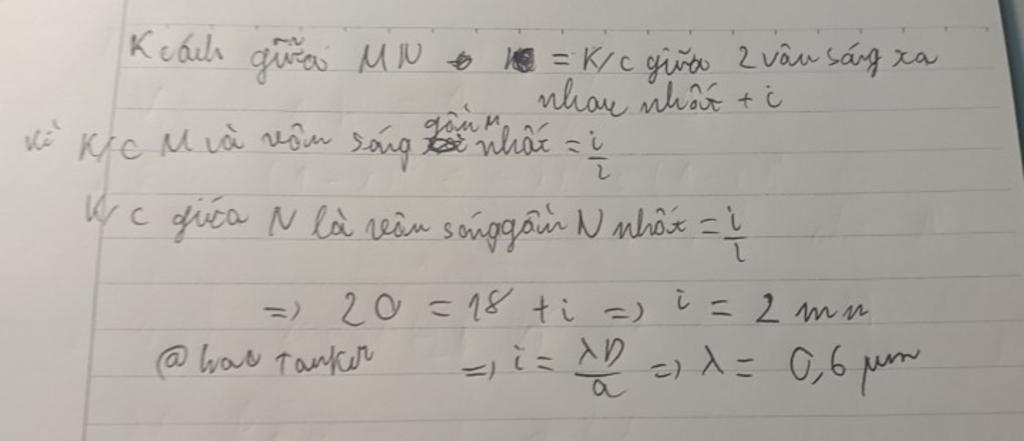 Kcách giữa MN = K/c giữa 2 vân sáng xa
nhau nhất + i
Vì K/c M và vân sáng gần M nhất = i/2
K/c giữa N là vân sáng gần N nhất = i/2
=> 20 = 18 + i => i = 2 mm
=> i = λD/a => λ = 0,6 μm